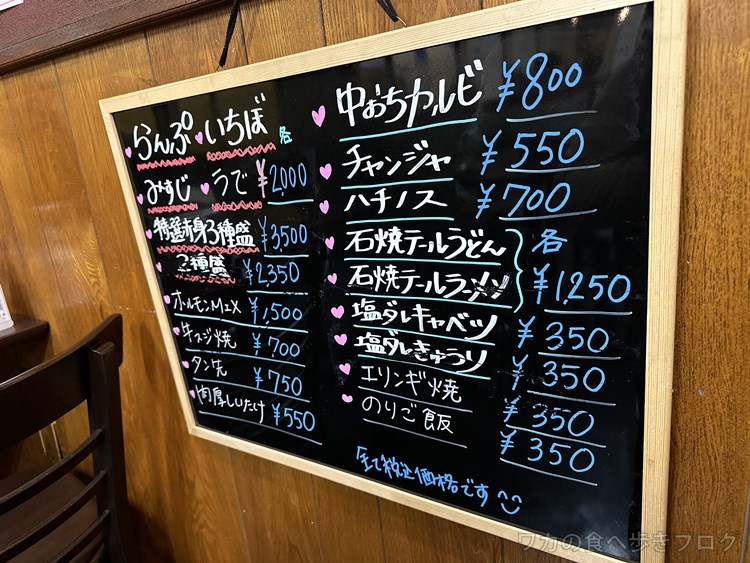 らんぷ いちぼ 各
みすじ うで ¥2,000
特選赤身3種盛 ¥3,500
2種盛 ¥2,350
ホルモンMIX ¥1,500
牛スジ焼 ¥700
タン先 ¥750
肉厚しいたけ ¥550
中おちカルビ ¥800
チャンジャ ¥550
ハチノス ¥700
石焼テールうどん 各
石焼テールラーメン ¥1,250
塩ダレキャベツ ¥350
塩ダレきゅうり ¥350
エリンギ焼 ¥350
のりご飯 ¥350
全て税込価格です
ワカの食べ歩きブログ